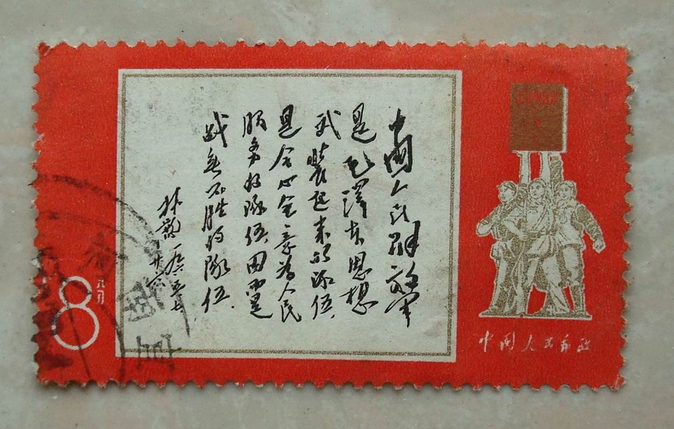 中国人民解放军
是毛澤东思想
武装起来的队伍,
是全心全意为人民
服务的队伍,因而是
战无不胜的队伍.
林彪
8
八分
中国人民邮政